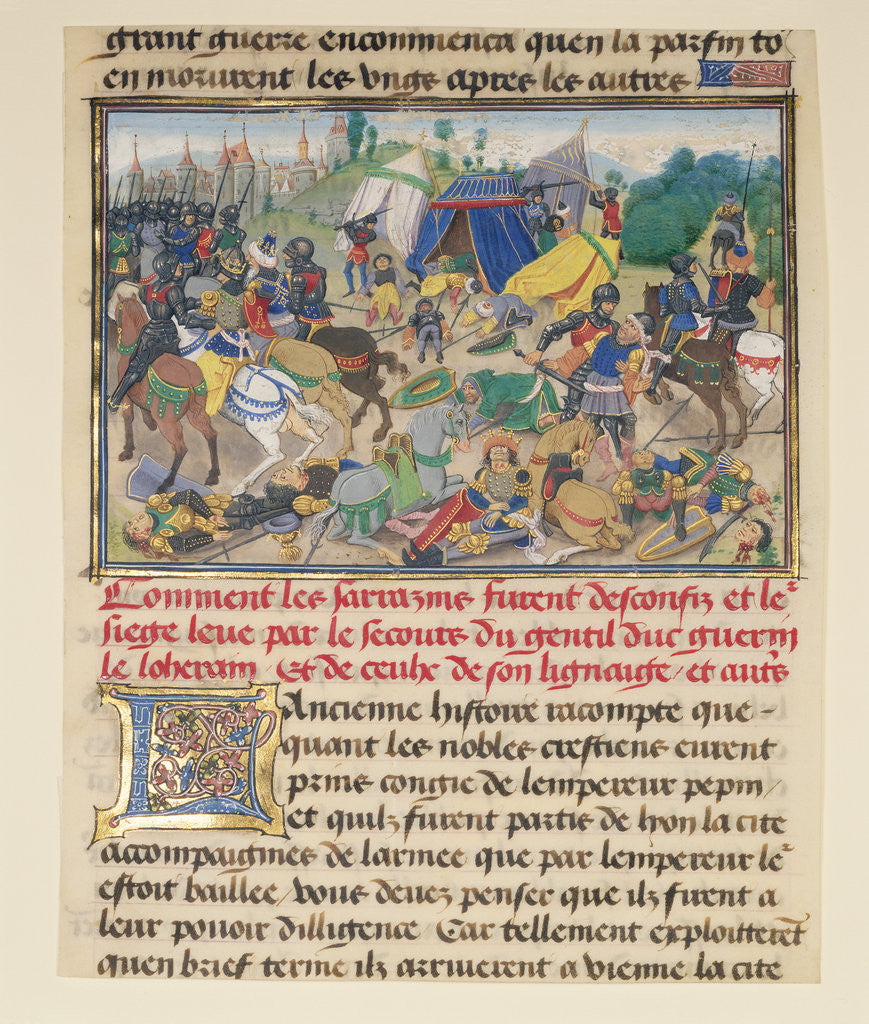 grant guerre encommenca quen la parfin to
en morurent les vngs apres les autres
Comment les sarrazins furent desconfiz et le
siege leue par le secours du gentil duc guerin
le loherain / Et de ceulx de son lignaige / et aut's
L Ancienne histoire racompte que -
quant les nobles crestiens eurent
prins congie de lempereur pepin /
et quilz furent partis de lyon la cite
accompaignies de larmee que par lempereur le
estoit baillee / vous deuez penser que ilz firent a
leur pouoir dilligence Car tellement exploitteret
quen brief terme ilz arriuerent a vienne la cite